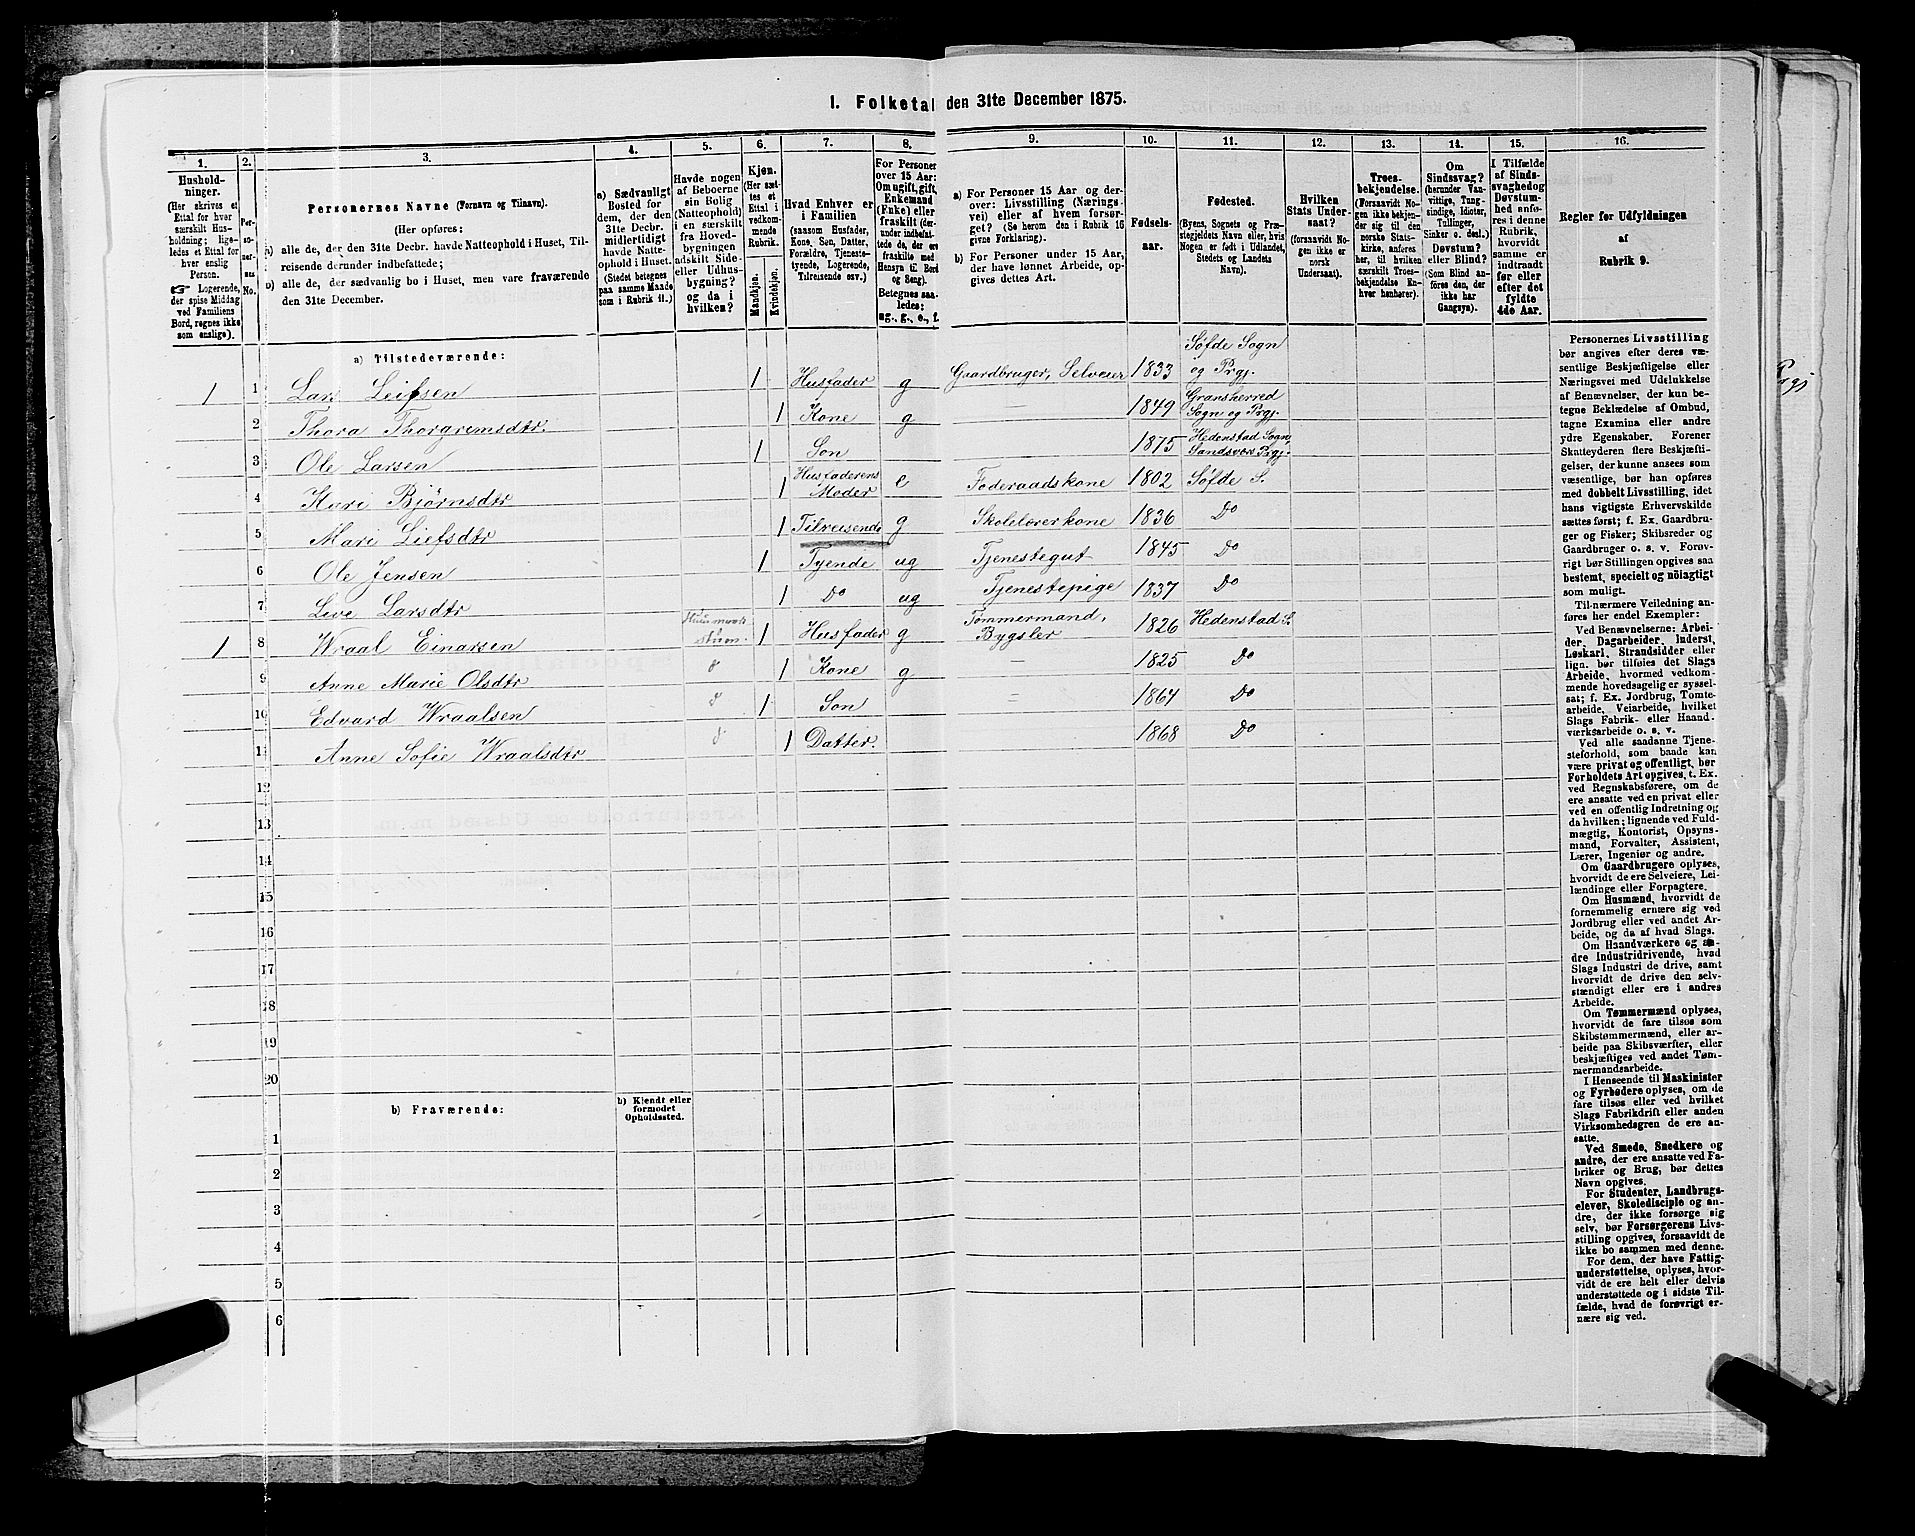 1. Folketal den 31te December 1875.
1. 2. 3. 4. 5. 6. 7. 8. 9. 10. 11. 12. 13. 14. 15. 16.
Hushold-
ninger.
(Her skrives et
Ettal for hver
særskilt Hus-
holdning; lige-
ledes et Ettal for
hver enslig
Person.
☞ Logerende,
der spise Middag
ved Familiens
Bord, regnes ikke
som enslige).
Per-
soner-
nes
No.
Personernes Navne (Fornavn og Tilnavn).
(Her opføres:
a) alle de, der den 31te Decbr. havde Natteophold i Huset, Til-
reisende derunder indbefattede;
b) alle de, der sædvanlig bo i Huset, men vare fraværende
den 31te December.
a) Sædvanligt
Bosted for
dem, der den
31te Decbr.
midlertidigt
havde Natte-
ophold i Huset.
(Stedet betegnes
paa samme Maade
som i Rubrik 11.)
Havde nogen
af Beboerne
sin Bolig
(Natteophold)
i en særskilt
fra Hoved-
bygningen
adskilt Side-
eller Udhus-
bygning?
og da i
hvilken?
Kjøn.
(Her sæt-
tes et
Ettal i
vedkom-
mende
Rubrik.
Mandkjøn.
Kvindekjøn.
Hvad Enhver er
i Familien
(saasom Husfader,
Kone, Søn, Datter,
Forældre, Tjeneste-
tyende, Logerende,
Tilreisende osv.)
For Personer
over 15 Aar:
Om ugift, gift,
Enkemand
(Enke) eller
fraskilt (der-
under indbefat-
tede de, der ere
fraskilte med
Hensyn til Bord
og Seng).
Betegnes saa-
ledes:
ug., g., e., f.
a) For Personer 15 Aar og der-
over: Livsstilling (Nærings-
vei) eller af hvem forsør-
get? (Se herom den i Rubrik 16
givne Forklaring).
b) For Personer under 15 Aar,
der have lønnet Arbeide, op-
gives dettes Art.
Fødsels-
aar.
Fødested.
(Byens, Sognets og Præ-
stegjeldets Navn eller, hvis
Nogen er født i Udlandet,
Stedets og Landets
Navn).
Hvilken
Stats Under-
saat?
(forsaavidt No-
gen ikke er
norsk
Undersaat).
Troes-
bekjendelse.
(Forsaavidt No-
gen ikke bekjen-
der sig til den
norske Stats-
kirke, anføres
her, til hvilken
særskilt Troes-
bekjendelse En-
hver henhører).
Om
Sindssvag?
(herunder Van-
vittige, Tung-
sindige, Idioter,
Tullinger,
Sinker o. desl.).
Døvstum?
eller Blind?
(Som Blind an-
føres den, der
ikke har
Gangsyn).
I Tilfælde
af Sinds-
svaghed og
Døvstum-
hed anfø-
res i denne
Rubrik,
hvorvidt
samme er
indtraadt
før eller
efter det
fyldte
4de Aar.
Regler for Udfyldningen
af
Rubrik 9.
a) Tilstedeværende:
1 1 Lars Leifsen 1 Husfader g Gaardbruger, Selveier 1833 Søfde Sogn og Prgj.
2 Thora Thorgrimsdtr. 1 Kone g — 1849 Gransherred Sogn og Prgj.
3 Ole Larsen 1 Søn 1875 Hedenstad Sogn, Sandsvær Prgj.
4 Kari Bjørnsdtr 1 Husfaderens Moder e Føderaadskone 1802 Søfde S.
5 Mari Liefsdtr 1 Tilreisende g Skolelærerkone 1836 Do
6 Ole Jensen 1 Tyende ug Tjenestegut 1845 Do
7 Live Larsdtr 1 Do ug Tjenestepige 1837 Do
1 8 Wraal Einarsen 1 Husfader g Tømmermand, Bygsler 1826 Hedenstad S.
9 Anne Marie Olsdtr 1 Kone g — 1825 Do
10 Edvard Wraalsen 1 Søn 1864 Do
11 Anne Sofie Wraalsdtr 1 Datter. 1868 Do
12
13
14
15
16
17
18
19
20
b) Fraværende:
b) Kjendt eller
formodet
Opholdssted.
1
2
3
4
5
6
Personernes Livsstilling
bør angives efter deres væ-
sentlige Beskjæftigelse eller
Næringsvei med Udelukkelse
af Benævnelser, der kun be-
tegne Beklædelse af Ombud,
tagne Examina eller andre
ydre Egenskaber. Forener
Skatteyderen flere Beskjæfti-
gelser, der kunne ansees som
væsentlige, bør han opføres
med dobbelt Livsstilling, idet
hans vigtigste Erhvervskilde
sættes først; f. Ex. Gaardbru-
ger og Fisker; Skibsreder og
Gaardbruger o. s. v. Forøv-
rigt bør Stillingen opgives saa
bestemt, specielt og nöiagtigt
som muligt.
Til nærmere Veiledning an-
føres her endel Exempler:
Ved Benævnelserne: Arbei-
der, Dagarbeider, Inderst,
Løskarl, Strandsidder eller
lign. bør tilføies det Slags
Arbeide, hvormed vedkom-
mende hovedsagelig er syssel-
sat; f. Ex. Jordbrug, Tomte-
arbeide, Veiarbeide, hvilket
Slags Fabrik- eller Haand-
værksarbeide o. s. v.
Ved alle saadanne Tjene-
steforhold, som baade kan
være privat og offentligt, bør
Forholdets Art opgives, t. Ex.
ved Regnskabsførere, om de
ere ansatte ved en privat eller
ved en offentlig Indretning og
da hvilken; lignende ved Fuld-
mægtig, Kontorist, Opsyns-
mand, Forvalter, Assistent,
Lærer, Ingeniør og andre.
Om Gaardbrugere oplyses,
hvorvidt de ere Selveiere, Lei-
lændinge eller Forpagtere.
Om Husmænd, hvorvidt de
fornemmelig ernære sig ved
Jordbrug eller ved andet Ar-
beide, og da af hvad Slags.
Om Haandværkere og an-
dre Industridrivende, hvad
Slags Industri de drive, samt
hvorvidt de drive den selv-
stændigt eller ere i andres
Arbeide.
Om Tømmermænd oplyses,
hvorvidt de fare tilsøs som
Skibstømmermænd, eller ar-
beide paa Skibsværfter, eller
beskjæftiges ved andet Tøm-
mermandsarbeide.
I Henseende til Maskinister
og Fyrbødere oplyses, om de
fare tilsøs eller ved hvilket
Slags Fabrikdrift eller anden
Virksomhedsgren de ere an-
satte.
Ved Smede, Snedkere og
andre, der ere ansatte ved Fa-
briker og Brug, bør dettes
Navn opgives.
For Studenter, Landbrugs-
elever, Skoledisciple og an-
dre, der ikke forsørge sig
selv, bør Forsørgerens Livs-
stilling opgives, forsaavidt de
ikke bo sammen med denne.
For dem, der have Fattig-
understøttelse, oplyses, hvor-
vidt de ere helt eller delvis
understøttede og i sidste Til-
fælde, hvad de forøvrigt er-
nære sig ved.